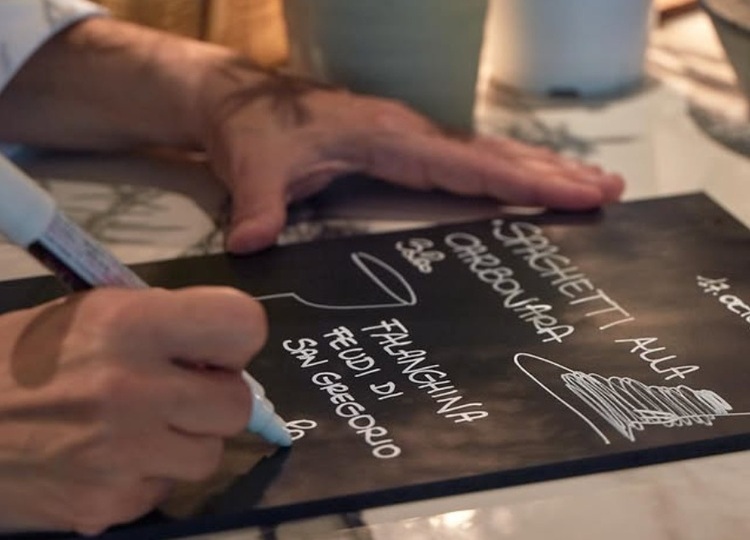 SPAGHETTI ALLA
CARBONARA
FALANGHINA
FEUDI DI
SAN GREGORIO